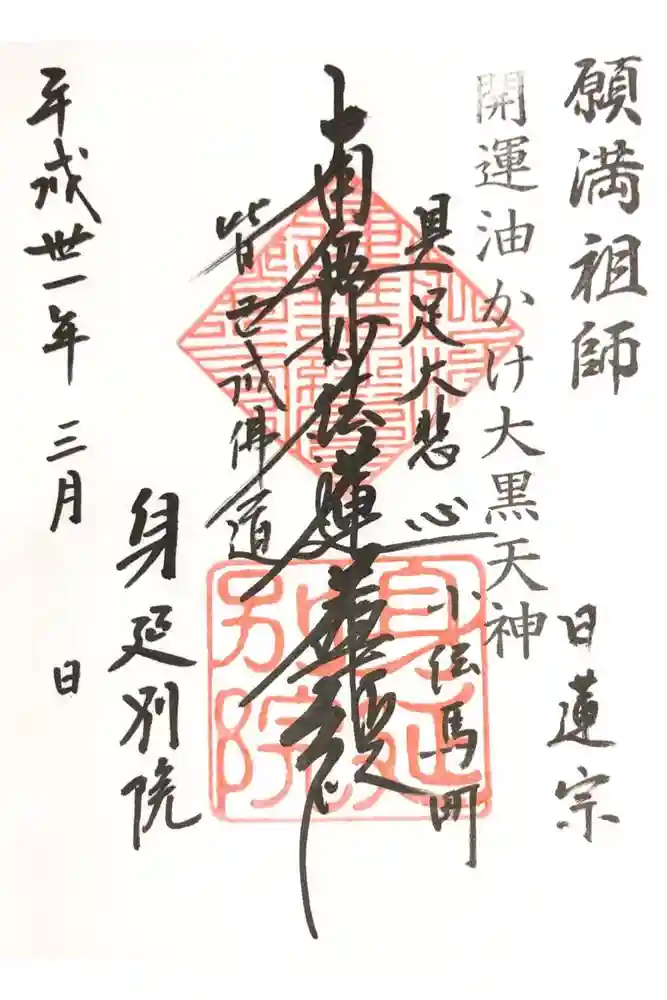 願満祖師
日蓮宗
開運油かけ大黒天神
具足大悲心
小伝馬町
南無妙法蓮華経
皆已成佛道
身延別院
身延別院
平成丗一年 三月 日